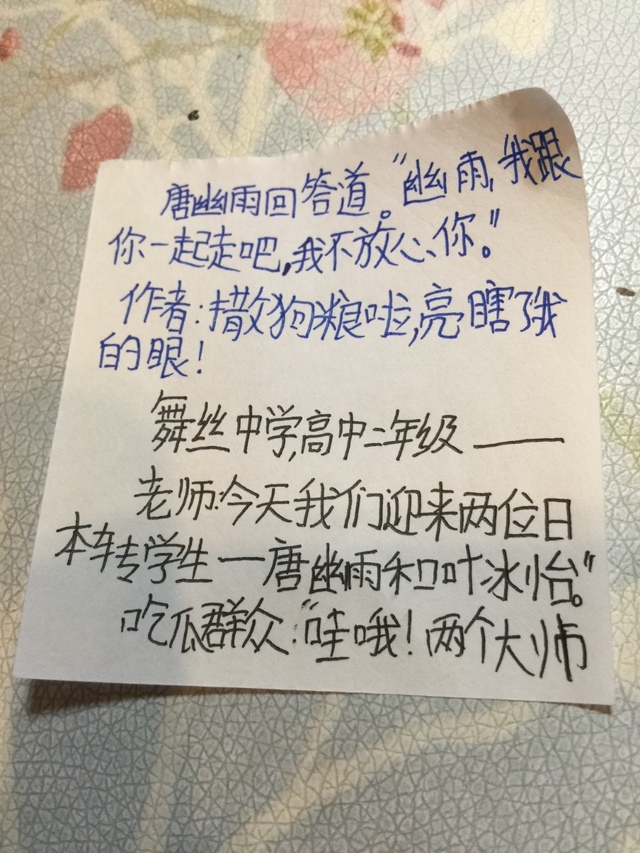 唐幽雨回答道。“幽雨,我跟
你一起走吧,我不放心你。”
作者:撒狗粮啦,亮瞎了我
的眼!
舞丝中学,高中二年级——
老师:今天我们迎来两位日
本转学生——唐幽雨和叶冰怡。”
吃瓜群众:“哇哦!两个大师